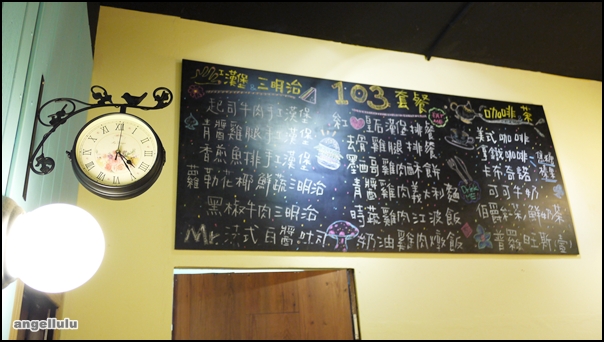 漢堡、三明治
起司牛肉手工漢堡
青醬雞腿手工漢堡
香煎魚排手工漢堡
蘿勒花椰鮮蔬三明治
黑椒牛肉三明治
Mr. 法式白醬吐司
103 套餐
紅 皇后漢堡排餐
去骨雞腿排餐
墨西哥雞肉酥餅
青醬雞肉義大利麵
時蔬雞肉江波飯
奶油雞肉燉飯
咖啡 茶
美式咖啡
拿鐵咖啡
卡布奇諾
可可牛奶
伯爵
普羅旺斯
angellulu